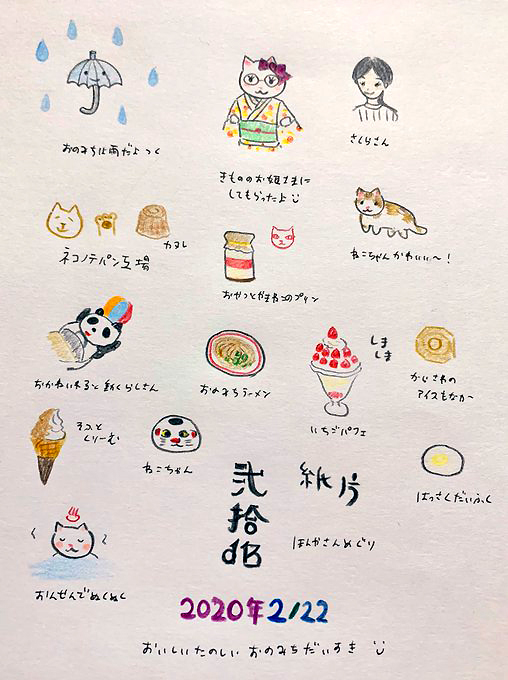 おのみちは雨だよ つく
きもののお姫さまに
してもらったよ
さくらさん
ねこちゃん かわいい〜！
カヌレ
ネコノテパン工場
おやつとやまねこのプリン
しま
しま
おのみちラーメン
からさわの
アイスもなか
いちごパフェ
そふと
くりーむ
ねこちゃん
はっさくだいふく
弐
拾
dB
紙片
ほんやさんめぐり
おんせんでぬくぬく
2020年2/22
おいしいたのしい おのみちだいすき